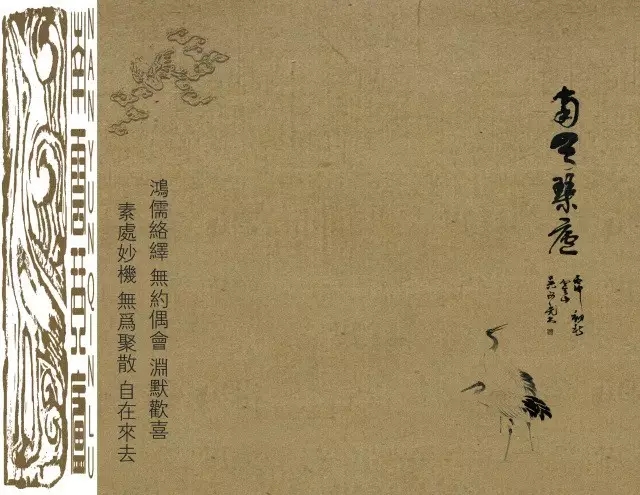 南雲琴廬
鴻儒絡繹 無約偶會 淵默歡喜
素處妙機 無爲聚散 自在來去
NAN YUN QIN LU